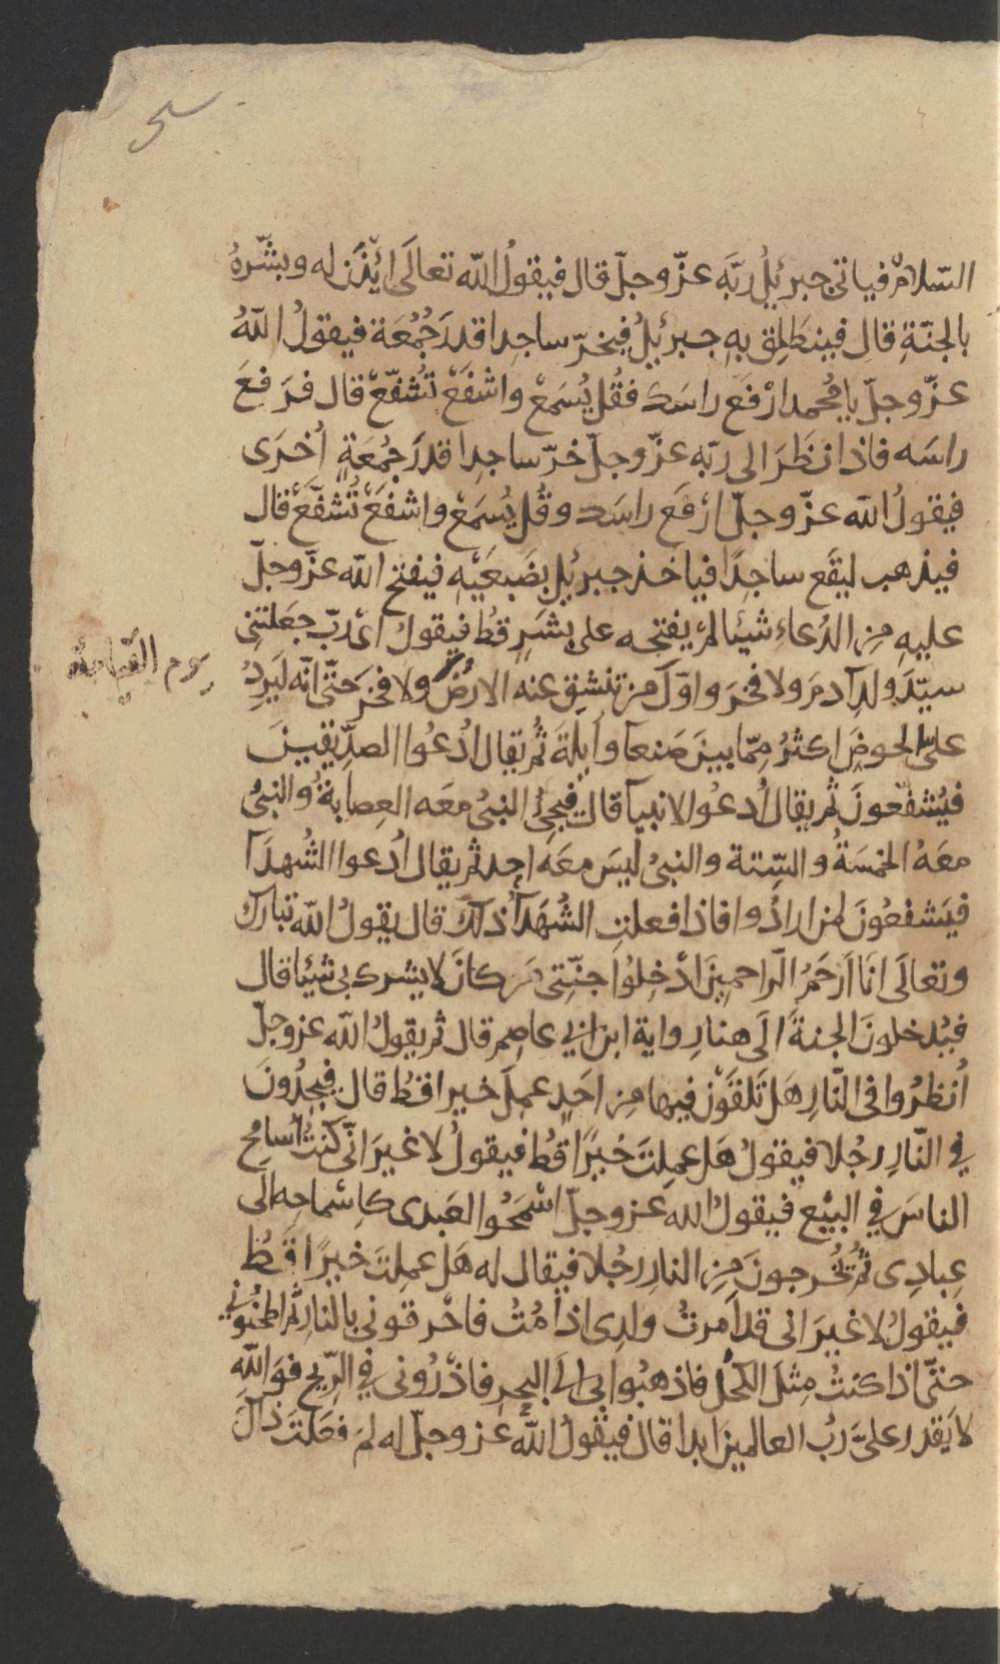 السّلامُ فياتى جبرئيلُ ربَّه عزّ وجلّ قال فيقولُ الله تعالَى ائْذَن له وبشّرهُ
بالجنّةِ قال فينطَلِق بهِ جبرئيلُ فيخرّ ساجدا قدرَ جُمُعَة فيقولُ اللهُ
عزّ وجلّ يا محُمد ارْفَع راسَكَ فقُل يُسمَعْ واشْفَعْ تُشَفّعْ قال فرَفعَ
راسَه فاذا نظَرَ الى ربّه عزّ وجلّ خرّ ساجدا قدرَ جُمُعَةٍ اُخرَى
فيقولُ الله عزّ وجلّ ارْفَع راسَك وقُل يُسمَعْ واشفَعْ تُشَفَّعْ قال
فيذهب ليقَع ساجِدًا فياخذ جبرئيل بضَبعَيْهِ فيفتح الله عزّ وجلّ
عليهِ مِن الدُعاءِ شيئا لمْ يفتحه على بشَرٍ قطُ فيقولُ اى ربّ جعَلتَنِى
سيّدَ ولدِ آدمَ ولا فخرَ واوّلَ من تنشقّ عنه الارضُ ولا فخرَ حتّى انّه ليَرِدُ
يوم القيامة
علىّ الحوضَ اكثرُ ممّا بينَ صَنعآ وأيلةَ ثُم يقال ادُعُوا الصدّيقينَ
فيُشفّعونَ ثم يقال اُدعُوا الانبيآ قال فيجئُ النبىُ معَه العِصابةُ والنبىُ
معَهُ الخمسَةُ والسِّتة والنبىُ ليسَ معَه احد ثم يقال اُدعوا الشُهدَآ
فيَشفعُونَ لمن ارادُوا فاذا فعلتِ الشُهَدآُ ذلكَ قال يقولُ الله تبارك
وتعالَى انَا اَرْحَمُ الرّاحمِينَ ادْخِلُوا جنّتِى من كانَ لا يشرك بى شيئا قال
فيُدخلونَ الجنةَ الَى هنا رواية ابن ابى عاصِم قال ثم يقولُ الله عز وجلّ
اُنظرُوا فى النّارِ هَل تَلقَوْن فيها مِن احَدٍ عمِلَ خيرا قطُ قال فيجِدُونَ
في النّارِ رجُلا فيقولُ هَل عمِلتَ خيرًا قطُ فيقولُ لا غيرَ انّى كنتُ اُسامِحُ
الناسَ في البيْع فيقولُ الله عز وجلّ اسْمَحُوا لعَبدى كاِسْماحِه الَى
عِبادِى ثُم يُخرجونَ مِن النارِ رجُلا فيقال له هَل عمِلتَ خيرًا قَطُ
فيقولُ لا غيرَ انى قد اَمرتُ ولدِى اذا مُتُ فاحْرقونى بالنارِ ثم اطحَنُونى
حتّى اذا كنتُ مِثلَ الكُحلُ فاذهبُوا بى الَى البحرِ فاذْرُونى في الرّيحِ فوَاللهِ
لا يَقدر علىّ ربُ العالمين ابدا قال فيقولُ اللهُ عز وجلّ له لمَ فعَلتَ ذلكَ